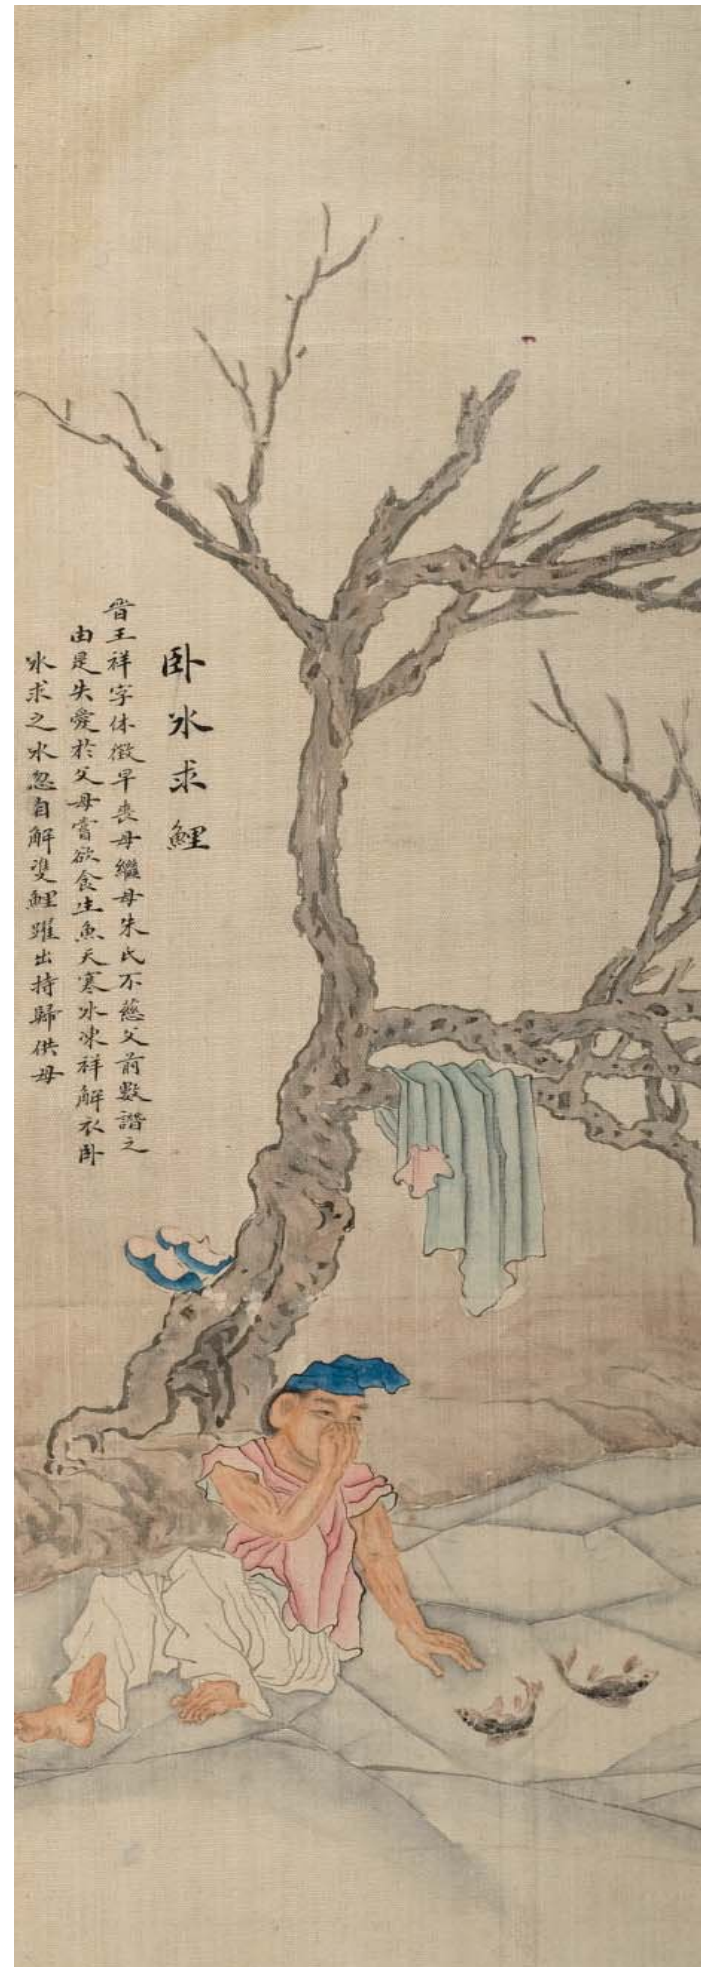 卧氷求鯉
晋王祥字休徴早丧母繼母朱氏不慈父前數譖之
由是失愛於父母嘗欲食生魚天寒氷凍祥解衣卧
氷求之氷忽自解雙鯉躍出持歸供母